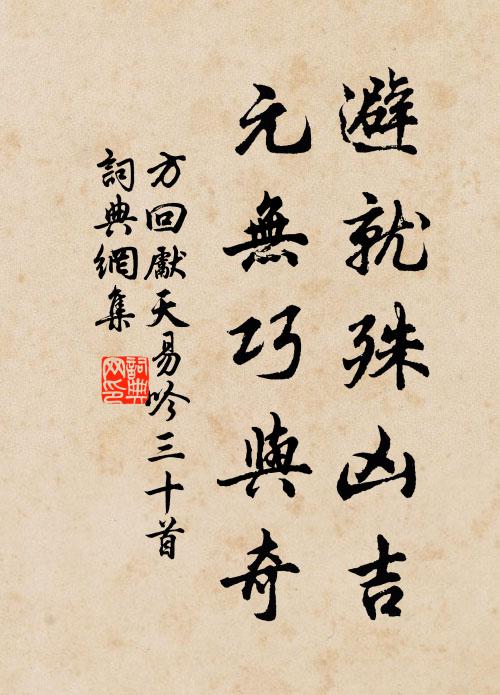 避就殊凶吉
元無巧與奇
方回獻天易吟三十首
詞典網集
詞典网印